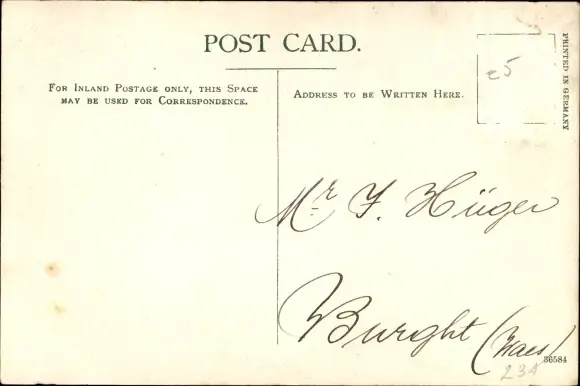 POST CARD.
FOR INLAND POSTAGE ONLY, THIS SPACE
MAY BE USED FOR CORRESPONDENCE.
ADDRESS TO BE WRITTEN HERE.
PRINTED IN GERMANY
e5
Mr F. Hüger
Burght (Waes)
36584
234